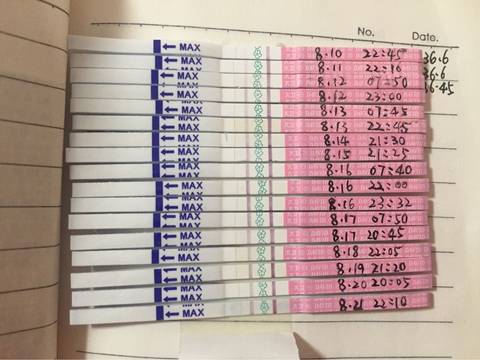 No. Date.
MAX 8.10 22:45 36.6
MAX 8.11 22:10 36.6
MAX 8.12 07:50 36.45
MAX 8.12 23:00
MAX 8.13 07:45
MAX 8.13 22:45
MAX 8.14 21:30
MAX 8.15 21:25
MAX 8.16 07:40
MAX 8.16 22:00
MAX 8.16 23:32
MAX 8.17 07:50
MAX 8.17 20:45
MAX 8.18 22:05
MAX 8.19 21:20
MAX 8.20 20:05
MAX 8.21 22:10